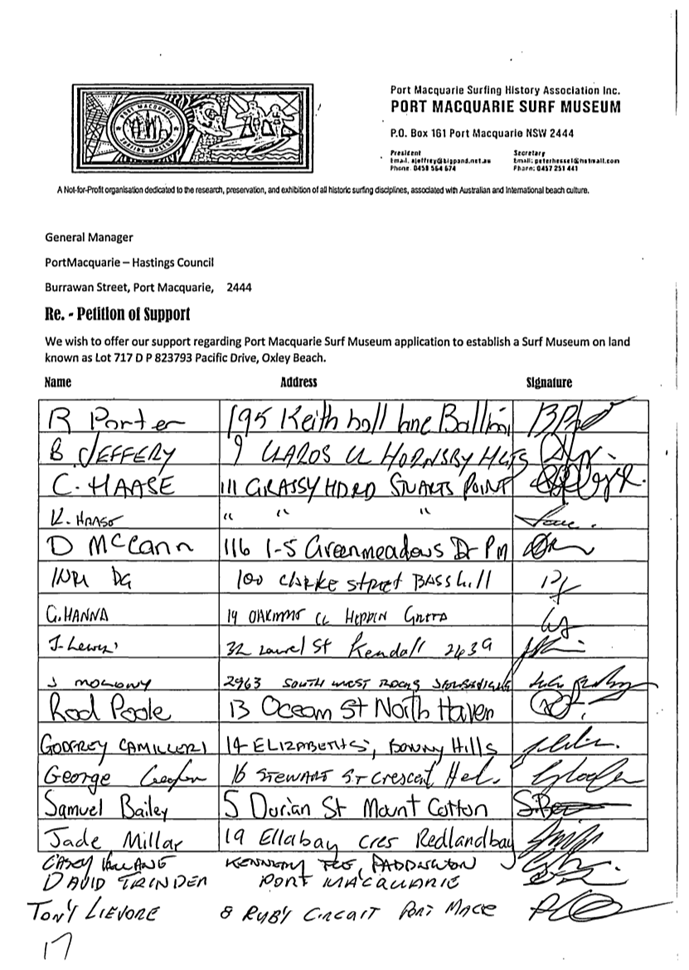 PORT MACQUARIE
SURFING MUSEUM
Port Macquarie Surfing History Association Inc.
PORT MACQUARIE SURF MUSEUM
P.O. Box 161 Port Macquarie NSW 2444
President Secretary
Email. ajeffrey@bigpand.net.au Email: peterhessel@hotmail.com
Phone. 0458 564 674 Phone: 0457 251 441
A Not-for-Profit organisation dedicated to the research, preservation, and exhibition of all historic surfing disciplines, associated with Australian and International beach culture.
General Manager
PortMacquarie – Hastings Council
Burrawan Street, Port Macquarie, 2444
Re. - Petition of Support
We wish to offer our support regarding Port Macquarie Surf Museum application to establish a Surf Museum on land
known as Lot 717 D P 823793 Pacific Drive, Oxley Beach.
Name Address Signature
R Porter 195 Keith hall lane
B JEFFERY 9 HORNSBY HGTS
C. HAASE 111 GRASSY HDRD STUARTS POINT
K. HAASE " " "
D McCann 116 1-5 Greenmeadows Dr PM
100 clarke street BASS hill
G. HANNA 14
J. Lewis 32 Laurel St Kendall 2439
J MOLONY 2963 SOUTH WEST ROCKS
Rod Poole 13 Ocean St North Haven
GODFREY CAMILLERI 14 ELIZABETH ST, BONNY HILLS
George 16 STEWART ST Crescent Hd.
Samuel Bailey 5 Dorian St Mount Cotton S.Bai
Jade Millar 19 Ellabay cres Redlandbay
CASEY KENNEDY PADDINGTON
DAVID TRINDER PORT MACQUARIE
TONY LIEVORE 8 RUBY CIRCUIT PORT MACQ
17